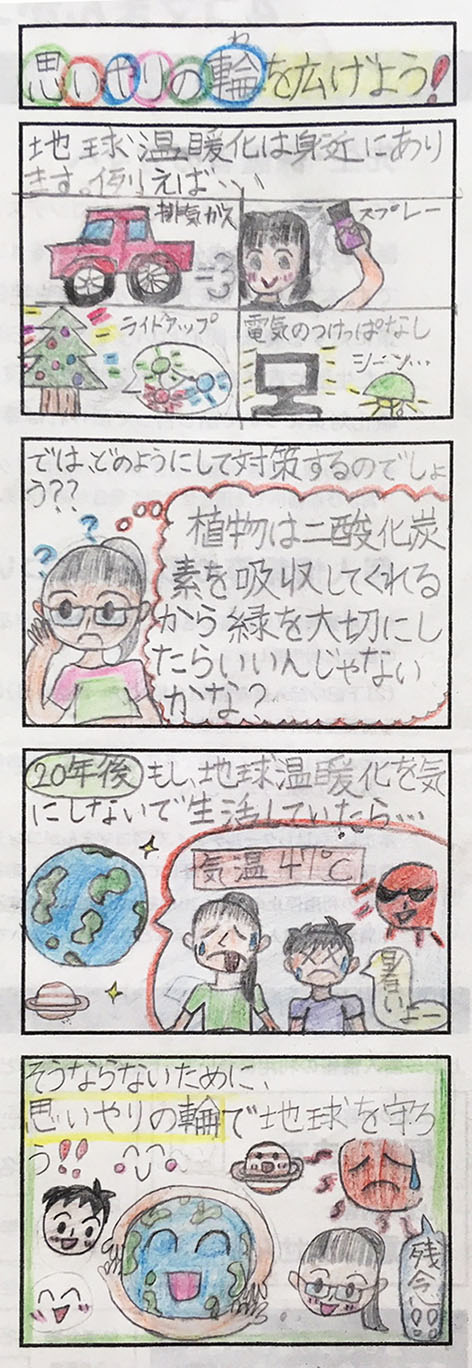 わ
思いやりの輪を広げよう!
地球温暖化は身近にあり
ます。例えば…
排気ガス
スプレー
ライトアップ
電気のつけっぱなし
シーン…
では、どのようにして対策するのでしょ
う??
? ?
植物は二酸化炭
素を吸収してくれる
から緑を大切にし
たらいいんじゃない
かな?
20年後 もし、地球温暖化を気
にしないで生活していたら…
気温41℃
暑いよー
そうならないために、
思いやりの輪で地球を守ろ
う!!
残念!!